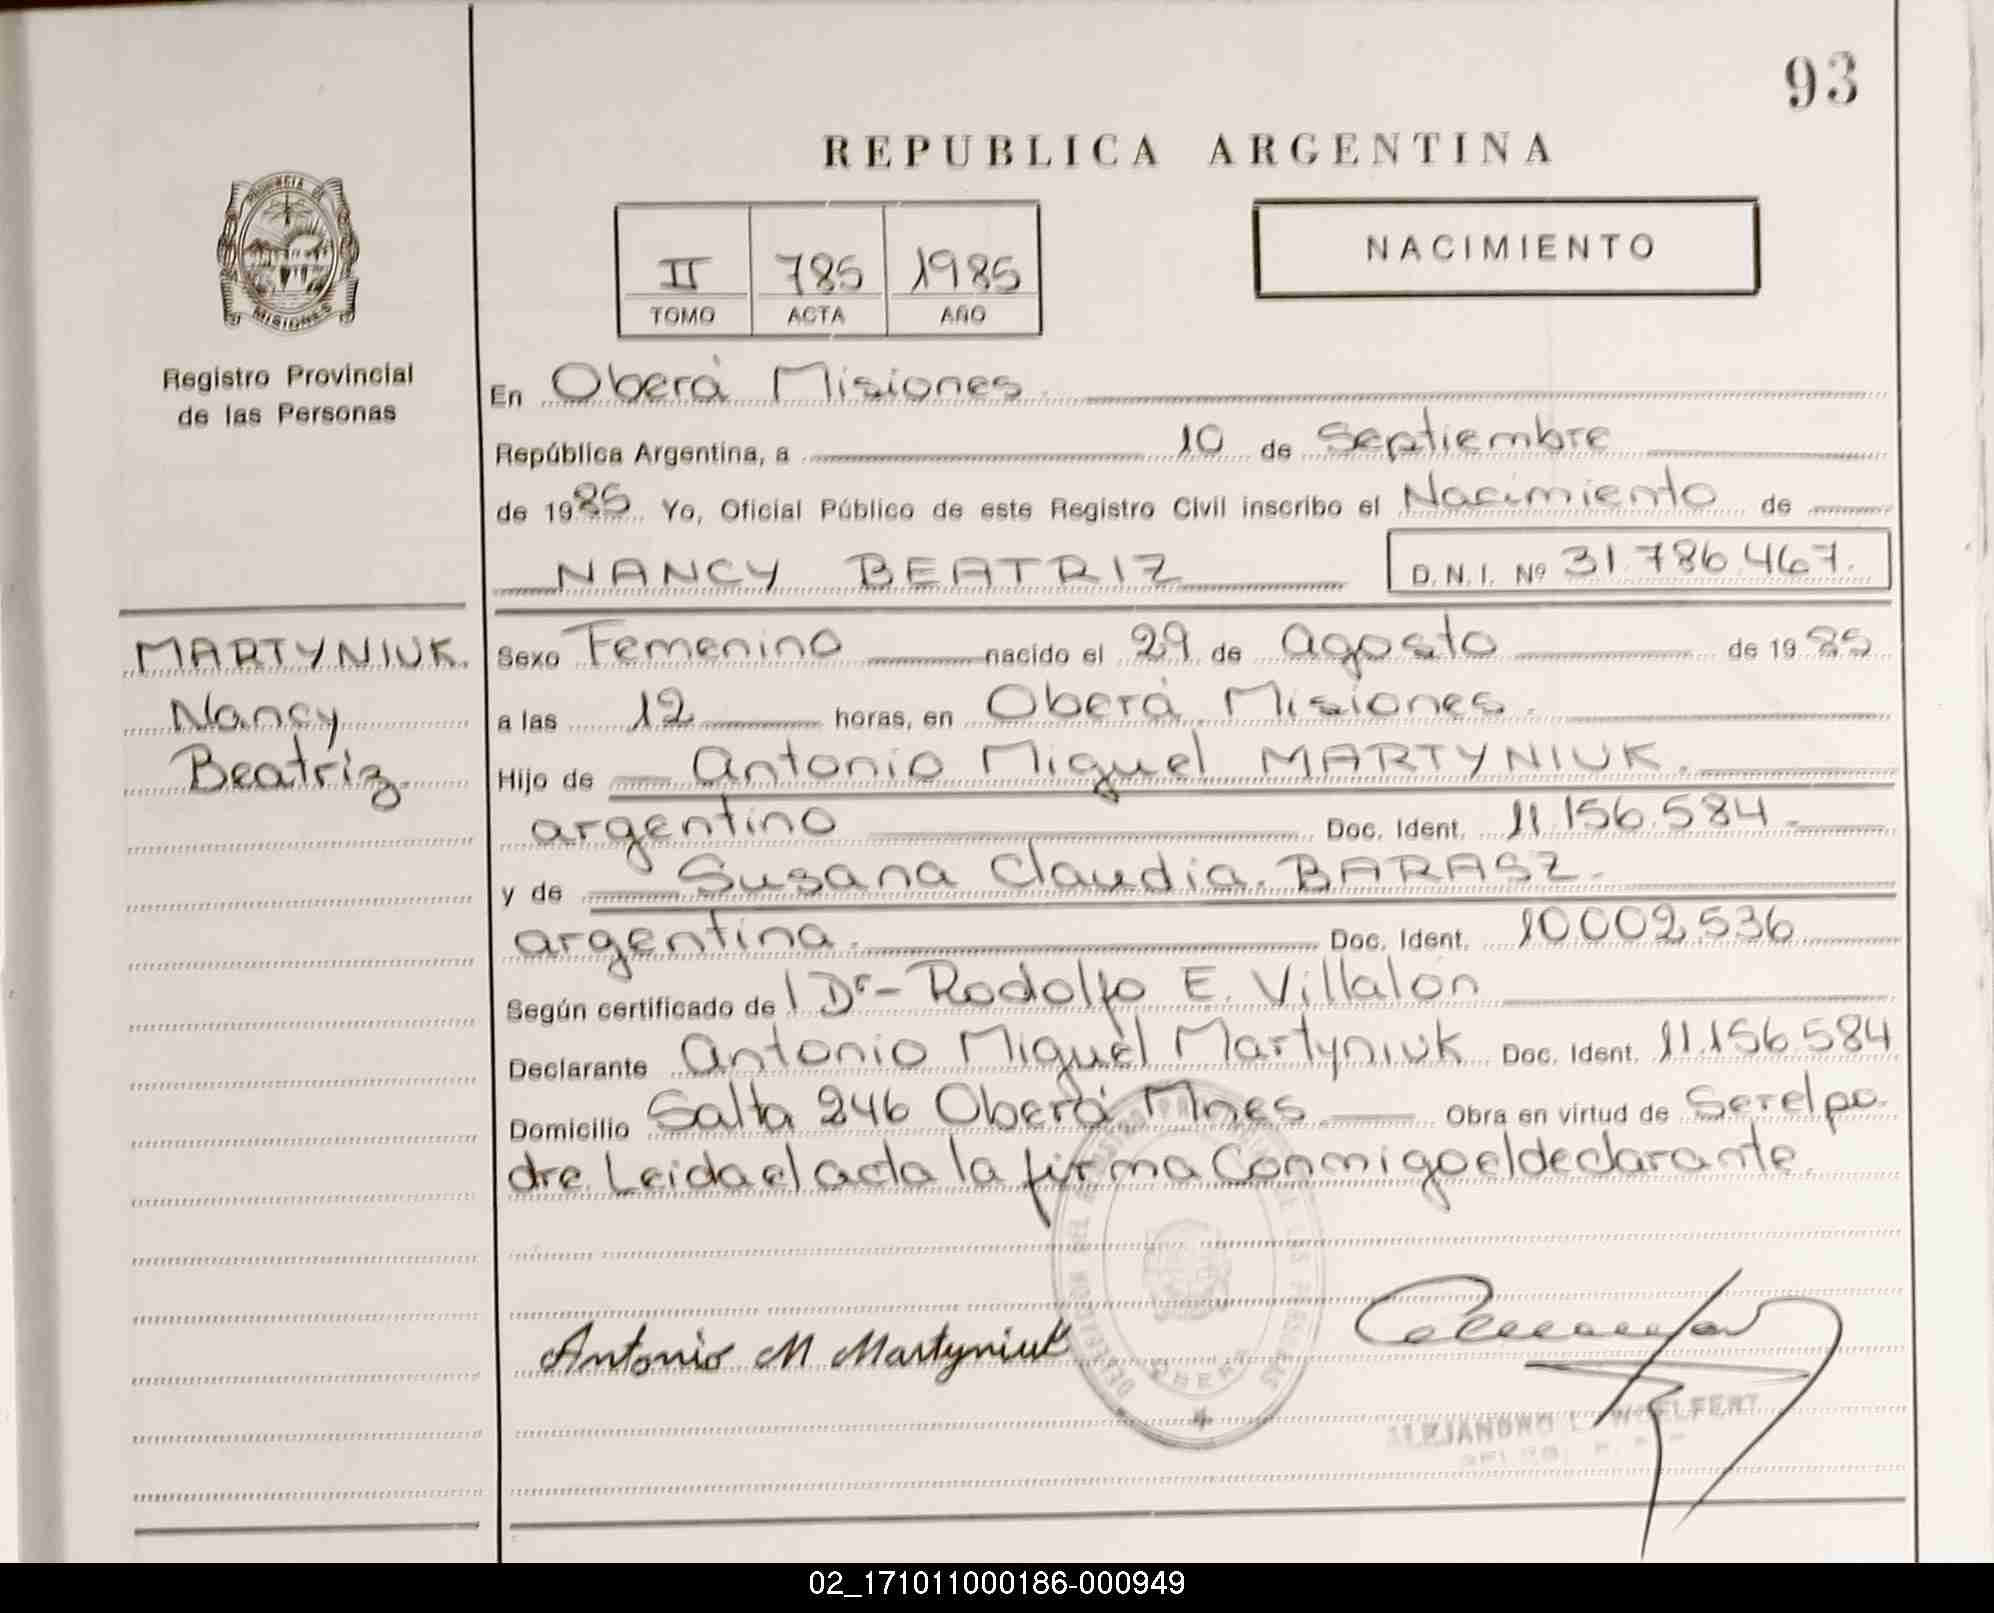 93
REPUBLICA ARGENTINA
PROVINCIA DE
MISIONES
Registro Provincial
de las Personas
II 785 1985
TOMO ACTA AÑO
NACIMIENTO
En Oberá Misiones.
República Argentina, a 10 de Septiembre
de 1985 Yo, Oficial Público de este Registro Civil inscribo el Nacimiento de
NANCY BEATRIZ D.N.I. Nº 31.786.467.
MARTYNIUK.
Nancy
Beatriz.
Sexo Femenino nacido el 29 de agosto de 1985
a las 12 horas, en Oberá Misiones.
Hijo de Antonio Miguel MARTYNIUK.
argentino Doc. Ident. 11.156.584.
y de Susana Claudia. BARASZ.
argentina. Doc. Ident. 10.002.536
Según certificado de l Dr- Rodolfo E. Villalón
Declarante Antonio Miguel Martyniuk Doc. Ident. 11.156.584
Domicilio Salta 246 Oberá Mnes Obra en virtud de Ser el pa
dre. Leida el acta la firma Conmigo el declarante.
Antonio M Martyniuk
OBERA
ALEJANDRO L. WOELFERT
02_171011000186-000949